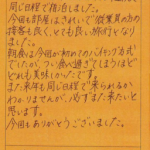 同じ日程で宿泊しました。
今回も部屋はきれいで従業員の方の
接客も良く、とても良い旅行となり
ました。
朝食は今回が初めてのバイキング方式
でしたが、つい食べ過ぎてしまうほど
どれも美味しかったです。
また来年も同じ日程で来られるか
わかりませんが、必ずまた来たいと
思います。
今回もありがとうございました。